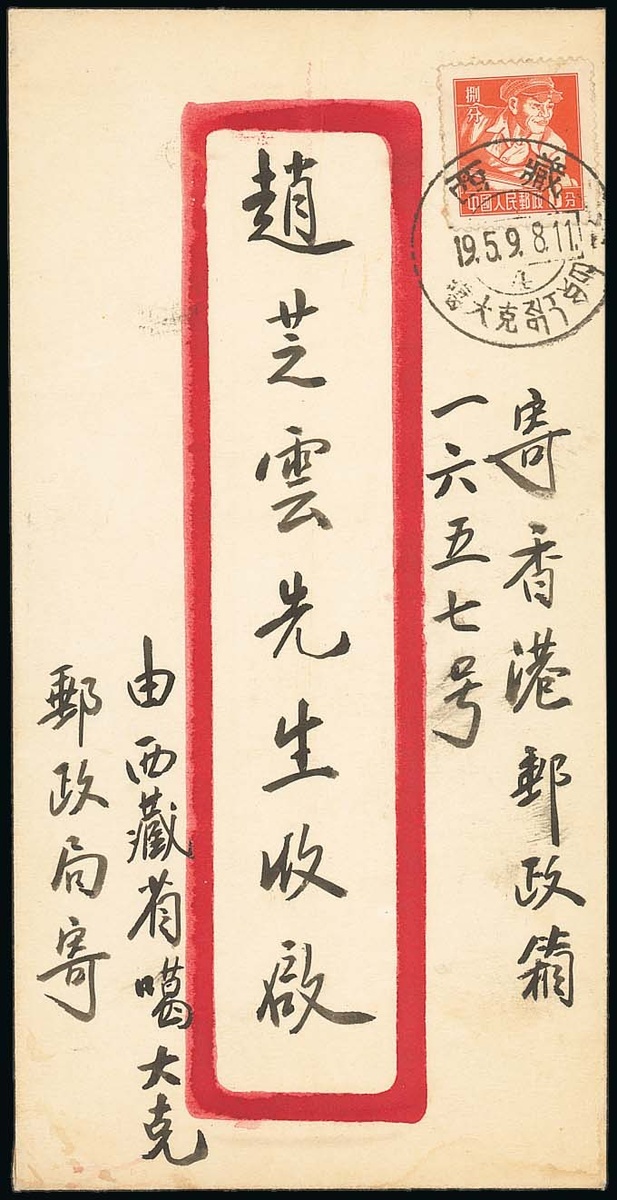 捌分
中國人民郵政
分
西藏
19.5.9. 8.11.
噶大克
寄香港郵政箱
一六五七号
趙芝雲先生收啟
由西藏省噶大克
郵政局寄